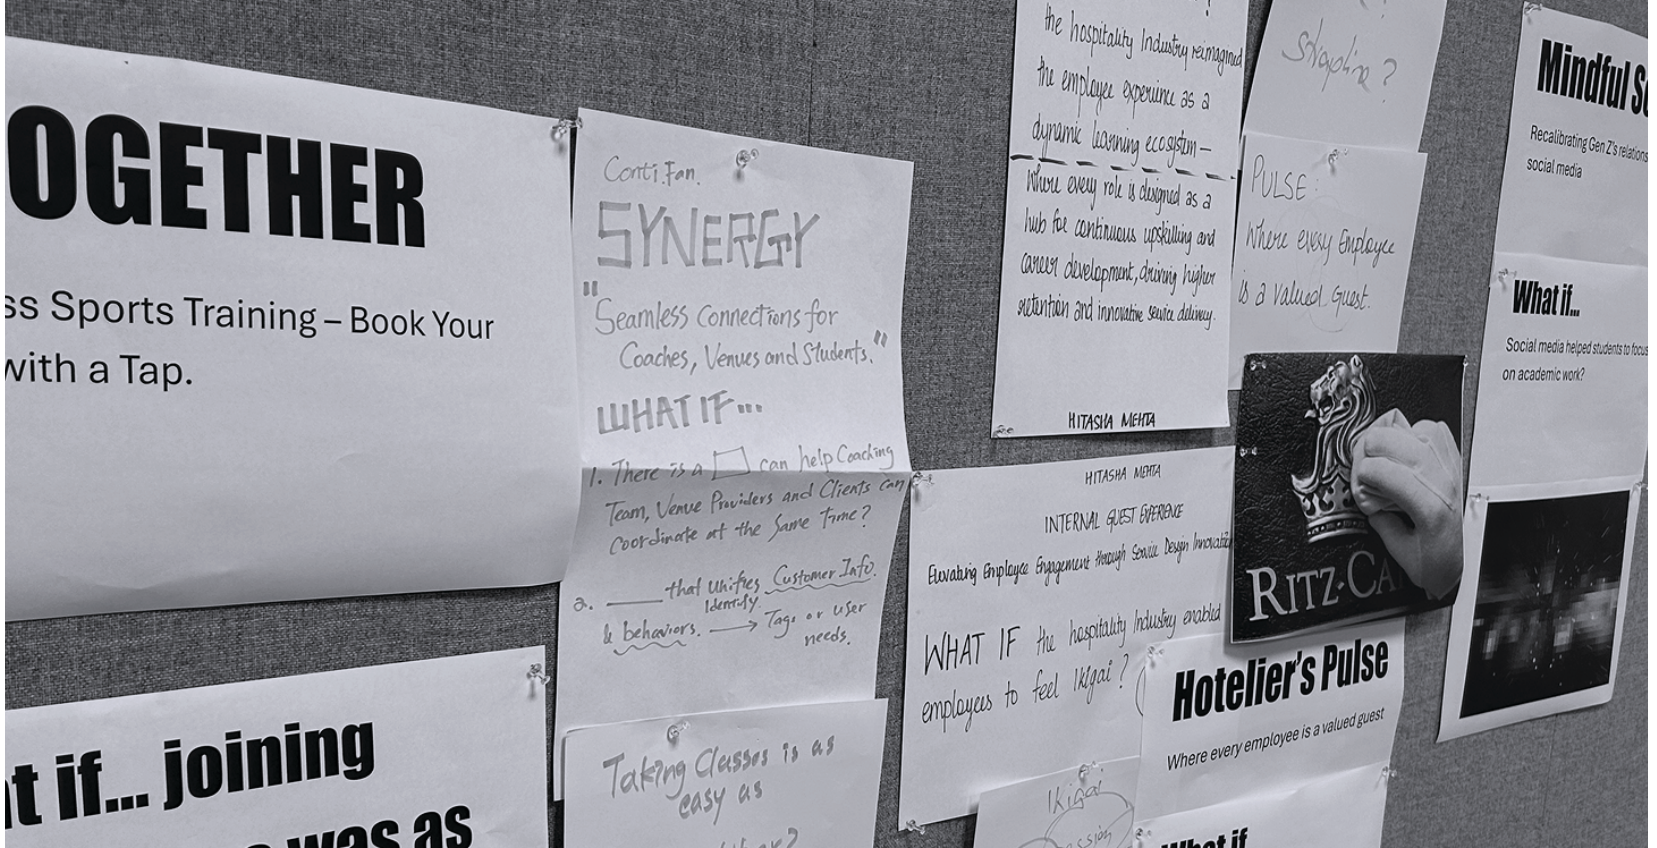 OGETHER
ss Sports Training – Book Your
with a Tap.
t if... joining
was as
Conti.Fan.
SYNERGY
"Seamless Connections for
Coaches, Venues and Students."
WHAT IF...
1. There is a can help Coaching
Team, Venue Providers and Clients can
Coordinate at the Same Time?
2. ____ that unifies Customer Info.
Identify
& behaviors. → Tags or user
needs.
Taking Classes is as
easy as
the hospitality Industry reimagined
the employee experience as a
dynamic learning ecosystem—
Where every role is designed as a
hub for continuous upskilling and
career development, driving higher
retention and innovative service delivery.
HITASHA MEHTA
HITASHA MEHTA
INTERNAL GUEST EXPERIENCE
Elevating Employee Engagement through Service Design Innovatio
WHAT IF the hospitality Industry enabled
employees to feel Ikigai?
Ikigai
Strapline?
PULSE:
Where every Employee
is a valued Guest.
RITZ-CA
Hotelier's Pulse
Where every employee is a valued guest
What if
Mindful S
Recalibrating Gen Z's relations
social media
What if...
Social media helped students to focus
on academic work?